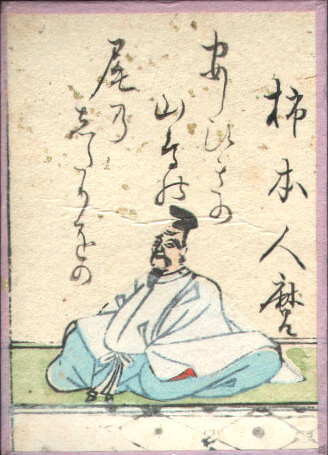 柿本人麿
あしひきの
山鳥の
尾の
したりをの